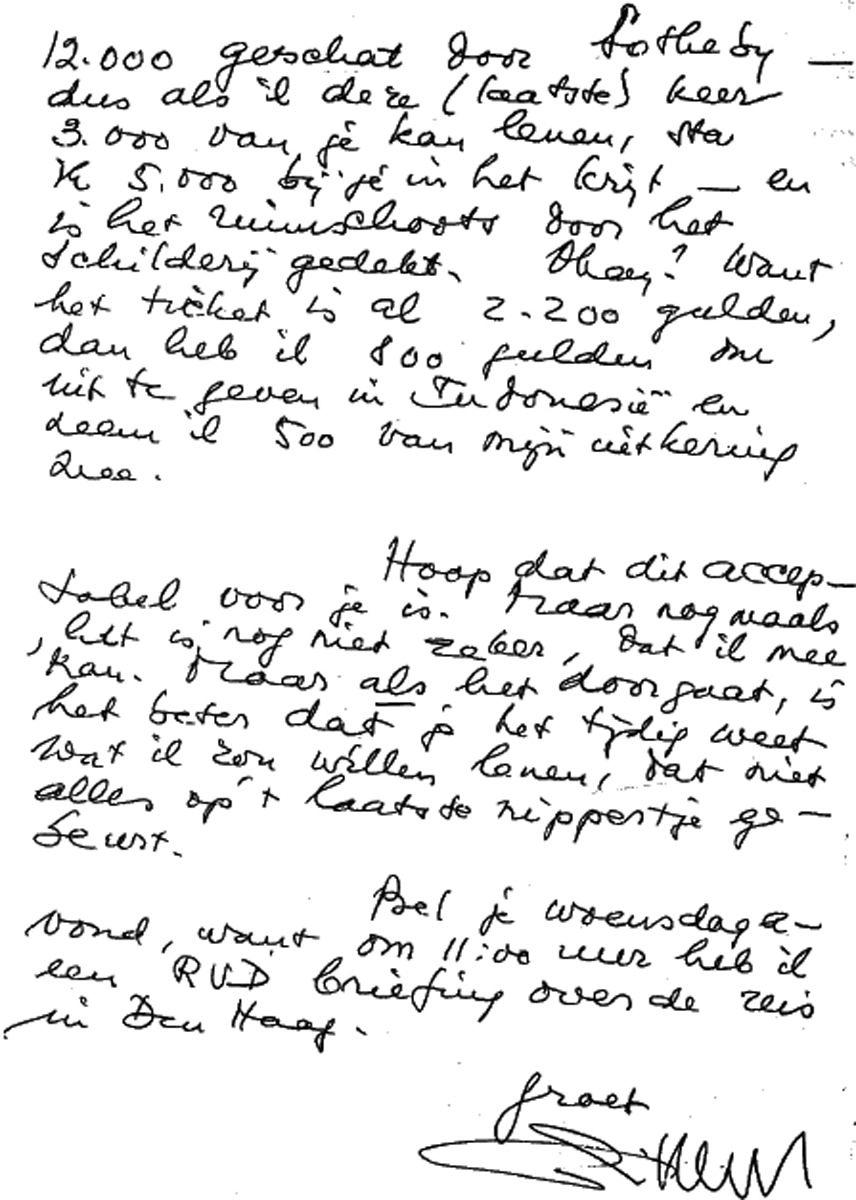 12.000 geschat door Sotheby —
dus als ik deze (laatste) keer
3.000 van je kan lenen, sta
ik 5.000 bij je in het krijt — en
is het ruimschoots door het
schilderij gedekt. Okay? Want
het ticket is al 2.200 gulden,
dan heb ik 800 gulden om
uit te geven in Indonesië en
neem ik 500 van mijn uitkering
mee.
Hoop dat dit accep-
tabel voor je is. Maar nogmaals
, het is nog niet zeker, dat ik mee
kan. Maar als het doorgaat, is
het beter dat je het tijdig weet
wat ik zou willen lenen, dat niet
alles op 't laatste nippertje ge-
beurt.
Bel je woensdaga-
vond, want om 11:00 uur heb ik
een RVD briefing over de reis
in Den Haag.
Groet
Willem